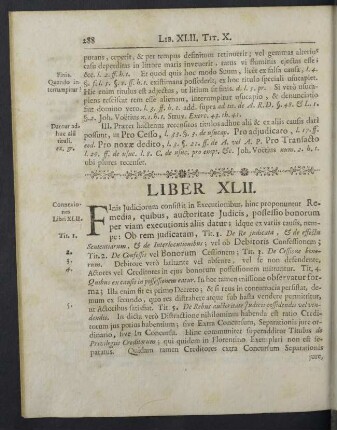 288
LIB. XLII. TIT. X.
putans, ceperit, & per tempus definitum retinuerit; vel gemmas alterius
casu deperditas in littore maris invenerit, tanto vi fluminis ejectas esse
det. l. 2. ff. h. t. Et quod quis hoc modo Suum, licet ex falsa causa, l. 4.
§. ff. h. t. existimans possederit, ex hoc titulo specialis usucapiet.
Hic enim titulus est adjectus, ut litium sit finis. d. l. 5. pr. Si vero usuca-
piens resciscat rem esse alienam, interrumpitur usucapio, & denunciatio
Finis.
Quando in-
terrumpitur?
dat dominio vero. l. 3. ff. h. t.
§. 2. Joh. Voetius n. 2. h. t. Struv.
III. Præter hactenus recensitos titulos adhuc alii & ex aliis causa dari
possunt, ut Pro Cesso, l. 33. §. 1. de usucap. Pro adjudicato, l. 17. ff.
eod. Pro noxæ dedito, l. 3. §. 21. ff. de A. vel A. P. Pro Transacto
l. 29. ff. de usuc. l. 8. C. de usuc. pro empt. &c. Joh. Voetius num. 2. h. t.
ubi plures recenset.
Dantur ad-
huc alii
tituli.
ex. gr.
LIBER XLII.
Connexio-
nem
Libri XLII.
Finis Judiciorum consistit in Executionibus. hinc proponuntur Re-
media, quibus, auctoritate Judicis, possessio bonorum
per viam executionis aliis datur: idque ex variis causis, nem-
pe: Ob rem judicatam, Tit. 1. De Re judicata, & de effectu
Sententiarum, & de Interlocutionibus; vel ob Debitoris Confessionem;
Tit. 2. De Confessis vel Bonorum Cessionem; Tit. 3. De Cessione bono-
rum. Debitore verò latitante vel absente, vel se non defendente,
Actores vel Creditores in ejus bonorum possessionem mittuntur. Tit. 4.
Quibus ex causis in possessionem eatur. In hac autem missione observatur for-
ma; Illa enim fit ex primo Decreto; & si reus in contumacia persistat, de-
mum ex secundo, quo res distrahere atque sub hasta vendere permittitur,
ut Actoribus satisfiat. Tit. 5. De Rebus auctoritate Judicis possidendis vel ven-
dendis. In dicta verò Distractione nihilominus habenda est ratio Credi-
torum jus potius habentium; sive Extra Concursum, Separationis jure or-
dinario, sive In Concursu. Hinc connumitet separandum Titulus de
Privilegiis Creditorum; qui quidem in Florentino Exemplari non est se-
paratus. Quidam tamen Creditores extra Concursum Separationis
jure,
Tit. 1.
2.
3.
4.
5.